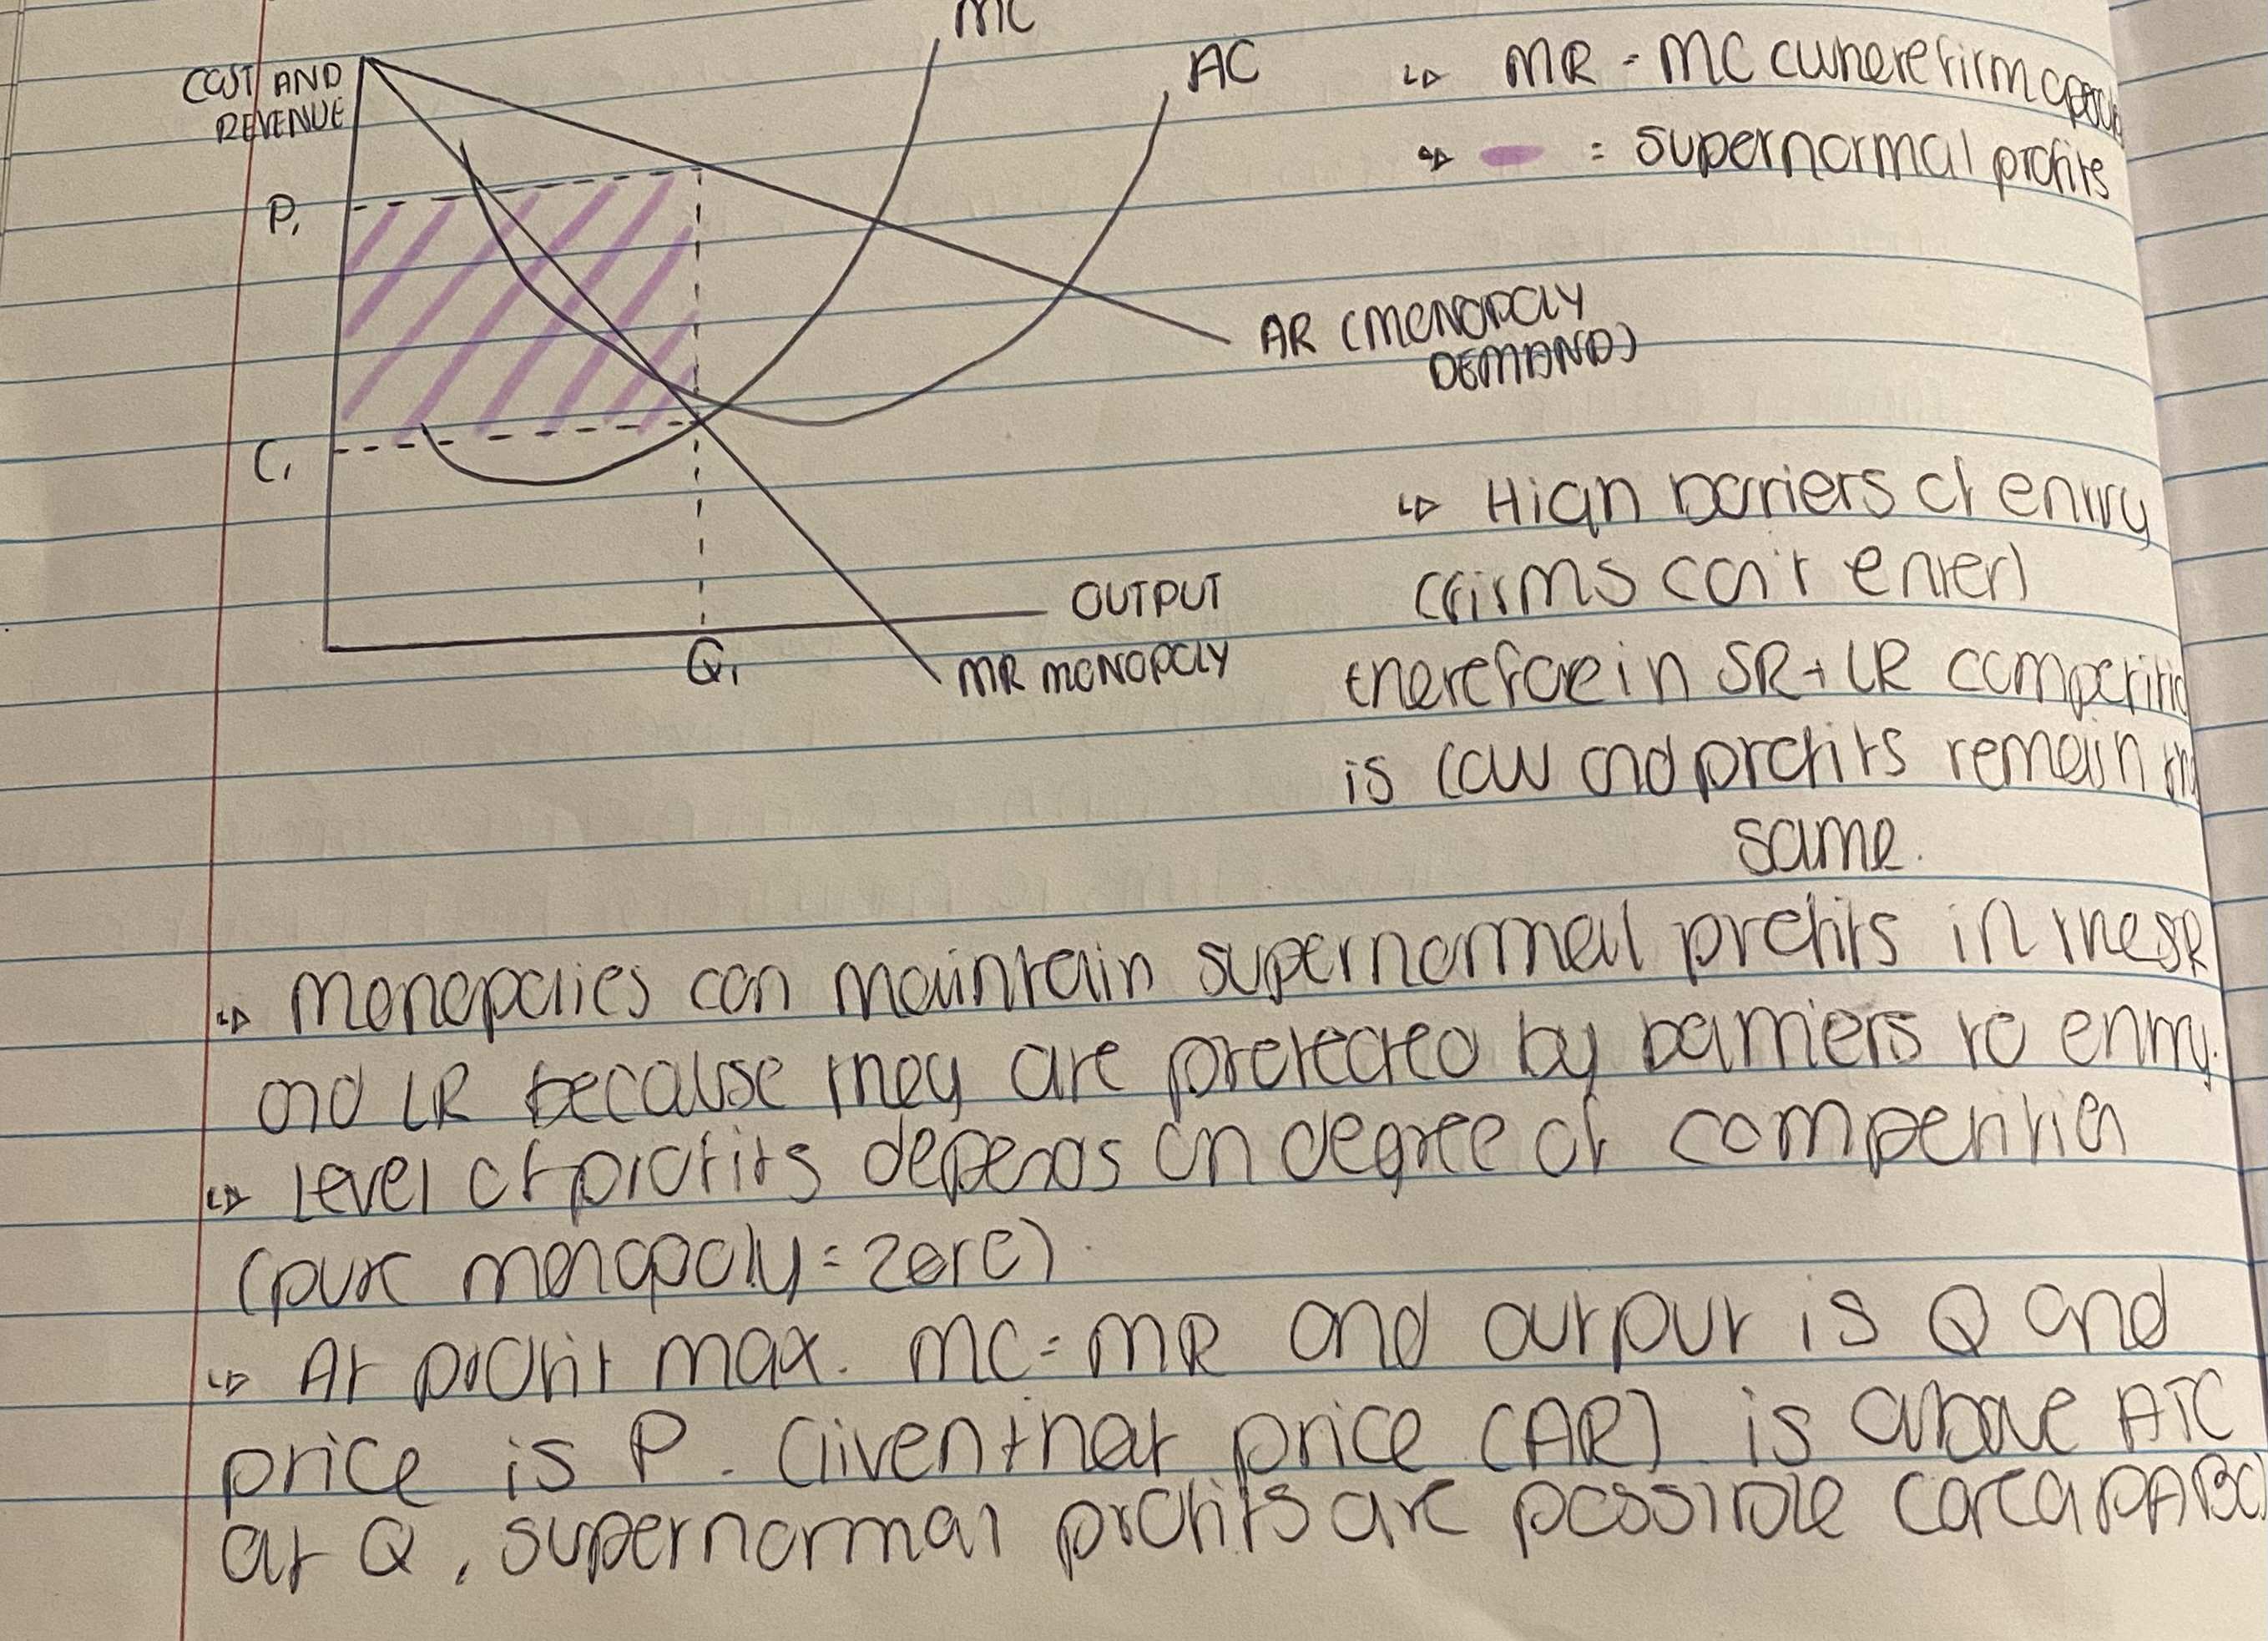 MC
COST AND
REVENUE
AC
↳ MR = MC (where firm
↳ = supernormal profits
P1
AR (MONOPOLY
DEMAND)
C1
↳ High barriers of entry
(firms can't enter)
OUTPUT
Q1
MR MONOPOLY
therefore in SR + LR
is low and profits remain
same.
↳ Monopolies can maintain supernormal profits in the SR
and LR because they are protected by barriers to entry.
↳ Level of profits depends on degree of competition
(pure monopoly = zero)
↳ At profit max. MC = MR and output is Q and
price is P. Given that price (AR) is above ATC
at Q, supernormal profits are possible (area PABC)